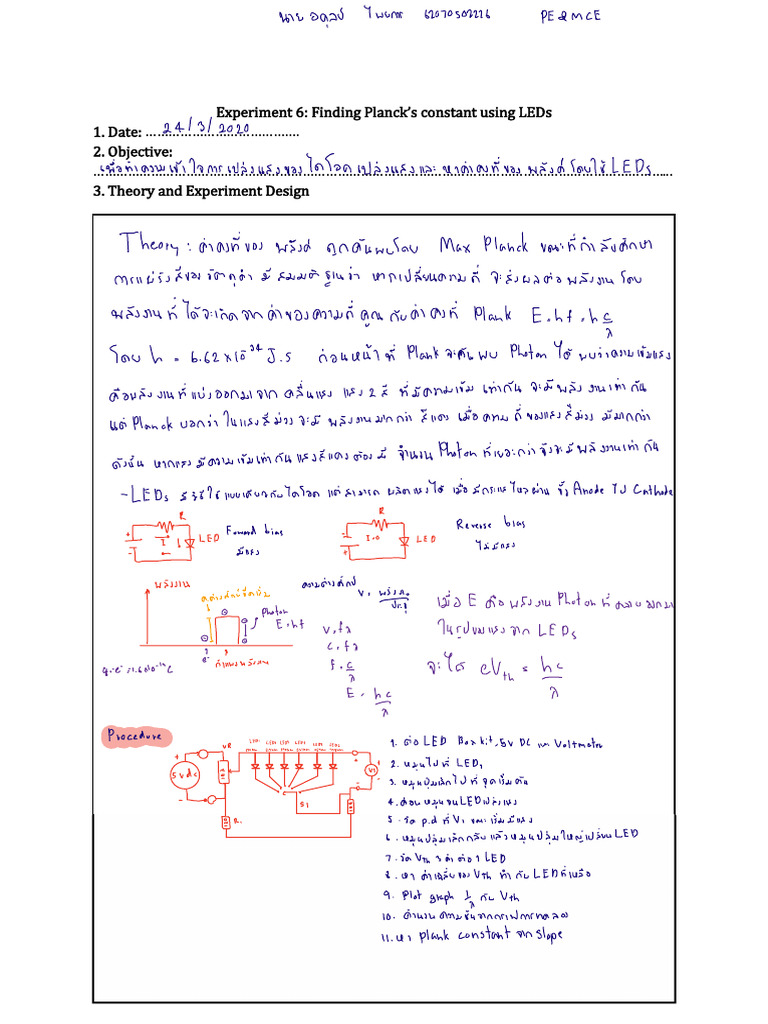 นาย อดุลย์ ไพยกร 62070502226 PE & MCE
Experiment 6: Finding Planck's constant using LEDs
1. Date: 24/3/2020
2. Objective:
เพื่อทำความเข้าใจการเปล่งแสงของไดโอดเปล่งแสงและ หาค่าคงที่ของ พลังค์ โดยใช้ LEDs
3. Theory and Experiment Design
Theory : ค่าคงที่ของ พลังค์ ถูกค้นพบโดย Max Planck ขณะที่กำลังศึกษา
การแผ่รังสีของวัตถุดำ มี สมมติฐานว่า หากเปลี่ยนความถี่ จะส่งผลต่อ พลังงาน โดย
พลังงานที่ได้จะเกิดจากค่าของความถี่ คูณ กับ ค่าคงที่ Plank E = hf = h c/λ
โดย h = 6.62 x 10^-34 J.s ก่อนหน้าที่ Plank จะค้นพบ Photon ได้ พบว่าความเข้มแสง
คือพลังงานที่แบ่งออกมาจาก คลื่นแสง แสง 2 สี ที่มีความเข้ม เท่ากัน จะมี พลังงานเท่ากัน
แต่ Planck บอกว่า ในแสงสีม่วงจะมี พลังงานมากกว่า สีแดง เมื่อ ความถี่ ของแสงสีม่วง มีมากกว่า
ดังนั้น หากแสงมีความเข้มเท่ากัน แสงสีแดงต้องมี จำนวน Photon ที่เยอะกว่า จึงจะมีพลังงานเท่ากัน
- LEDs มีวิธีใช้แบบเดียวกับไดโอด แต่สามารถ ผลิตแสงได้ เมื่อมีกระแสไหลผ่าน ขั้ว Anode ไป Cathode
R LED I Foward bias มีแสง
R LED I=0 Reverse bias ไม่มีแสง
พลังงาน
Photon
E = hf
ความต่างศักย์ V = พลังงาน/ประจุ
V = fλ
C = fλ
f = c/λ
E = hc/λ
เมื่อ E คือ พลังงาน Photon ที่คายออกมา
ในรูปของแสงจาก LEDs
จะได้ eVth = hc/λ
Procedure
5 v dc VR R1 S1 V1
LED1 LED2 LED3 LED4 LED5 LED6
1. ต่อ LED Box kit, 5v DC และ Voltmeter
2. หมุนไปที่ LED1
3. หมุนปุ่มเล็กไปที่ จุดเริ่มต้น
4. ค่อยหมุนจน LED เปล่งแสง
5. วัด p.d ที่ V1 ขณะเริ่มมีแสง
6. หมุนปุ่มเล็กกลับ แล้วหมุนปุ่มใหญ่เปลี่ยน LED
7. วัด Vth 3 ค่า ต่อ 1 LED
8. หา ค่าเฉลี่ยของ Vth ทำกับ LED ที่เหลือ
9. Plot graph 1/λ กับ Vth
10. คำนวนความชันจากกราฟการทดลอง
11. หา plank constant จาก slope